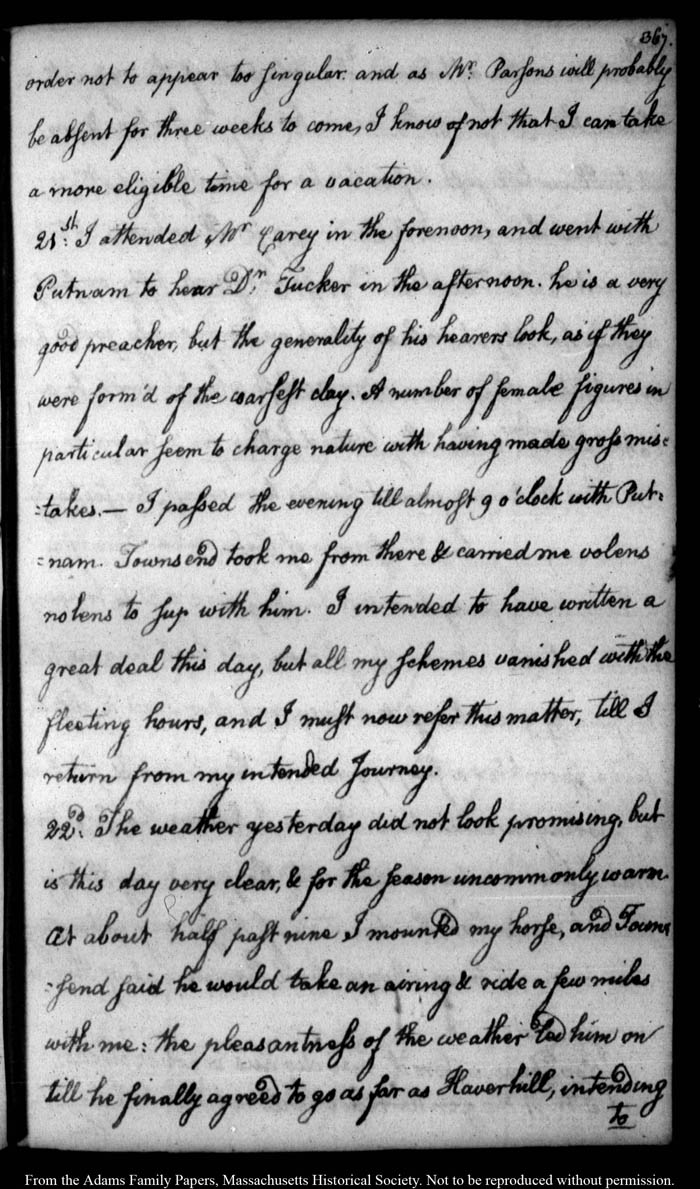 367.
order not to appear too singular: and as Mr. Parsons will probably
be absent for three weeks to come, I know of not that I can take
a more eligible time for a vacation.
21st: I attended Mr Carey in the forenoon, and went with
Putnam to hear Dr. Tucker in the afternoon. he is a very
good preacher, but the generality of his hearers look, as if they
were form'd of the coarsest clay. A number of female figures in
particular seem to charge nature with having made gross mis=
=takes.— I passed the evening till almost 9 o'clock with Put=
=nam. Townsend took me from there & carried me volens
nolens to sup with him. I intended to have written a
great deal this day, but all my schemes vanished with the
fleeting hours, and I must now refer this matter, till I
return from my intended Journey.
22d: The weather yesterday did not look promising, but
is this day very clear, & for the season uncommonly warm.
At about half past nine I mounted my horse, and Town=
=send said he would take an airing & ride a few miles
with me: the pleasantness of the weather led him on
till he finally agreed to go as far as Haverhill, intending
to
From the Adams Family Papers, Massachusetts Historical Society. Not to be reproduced without permission.